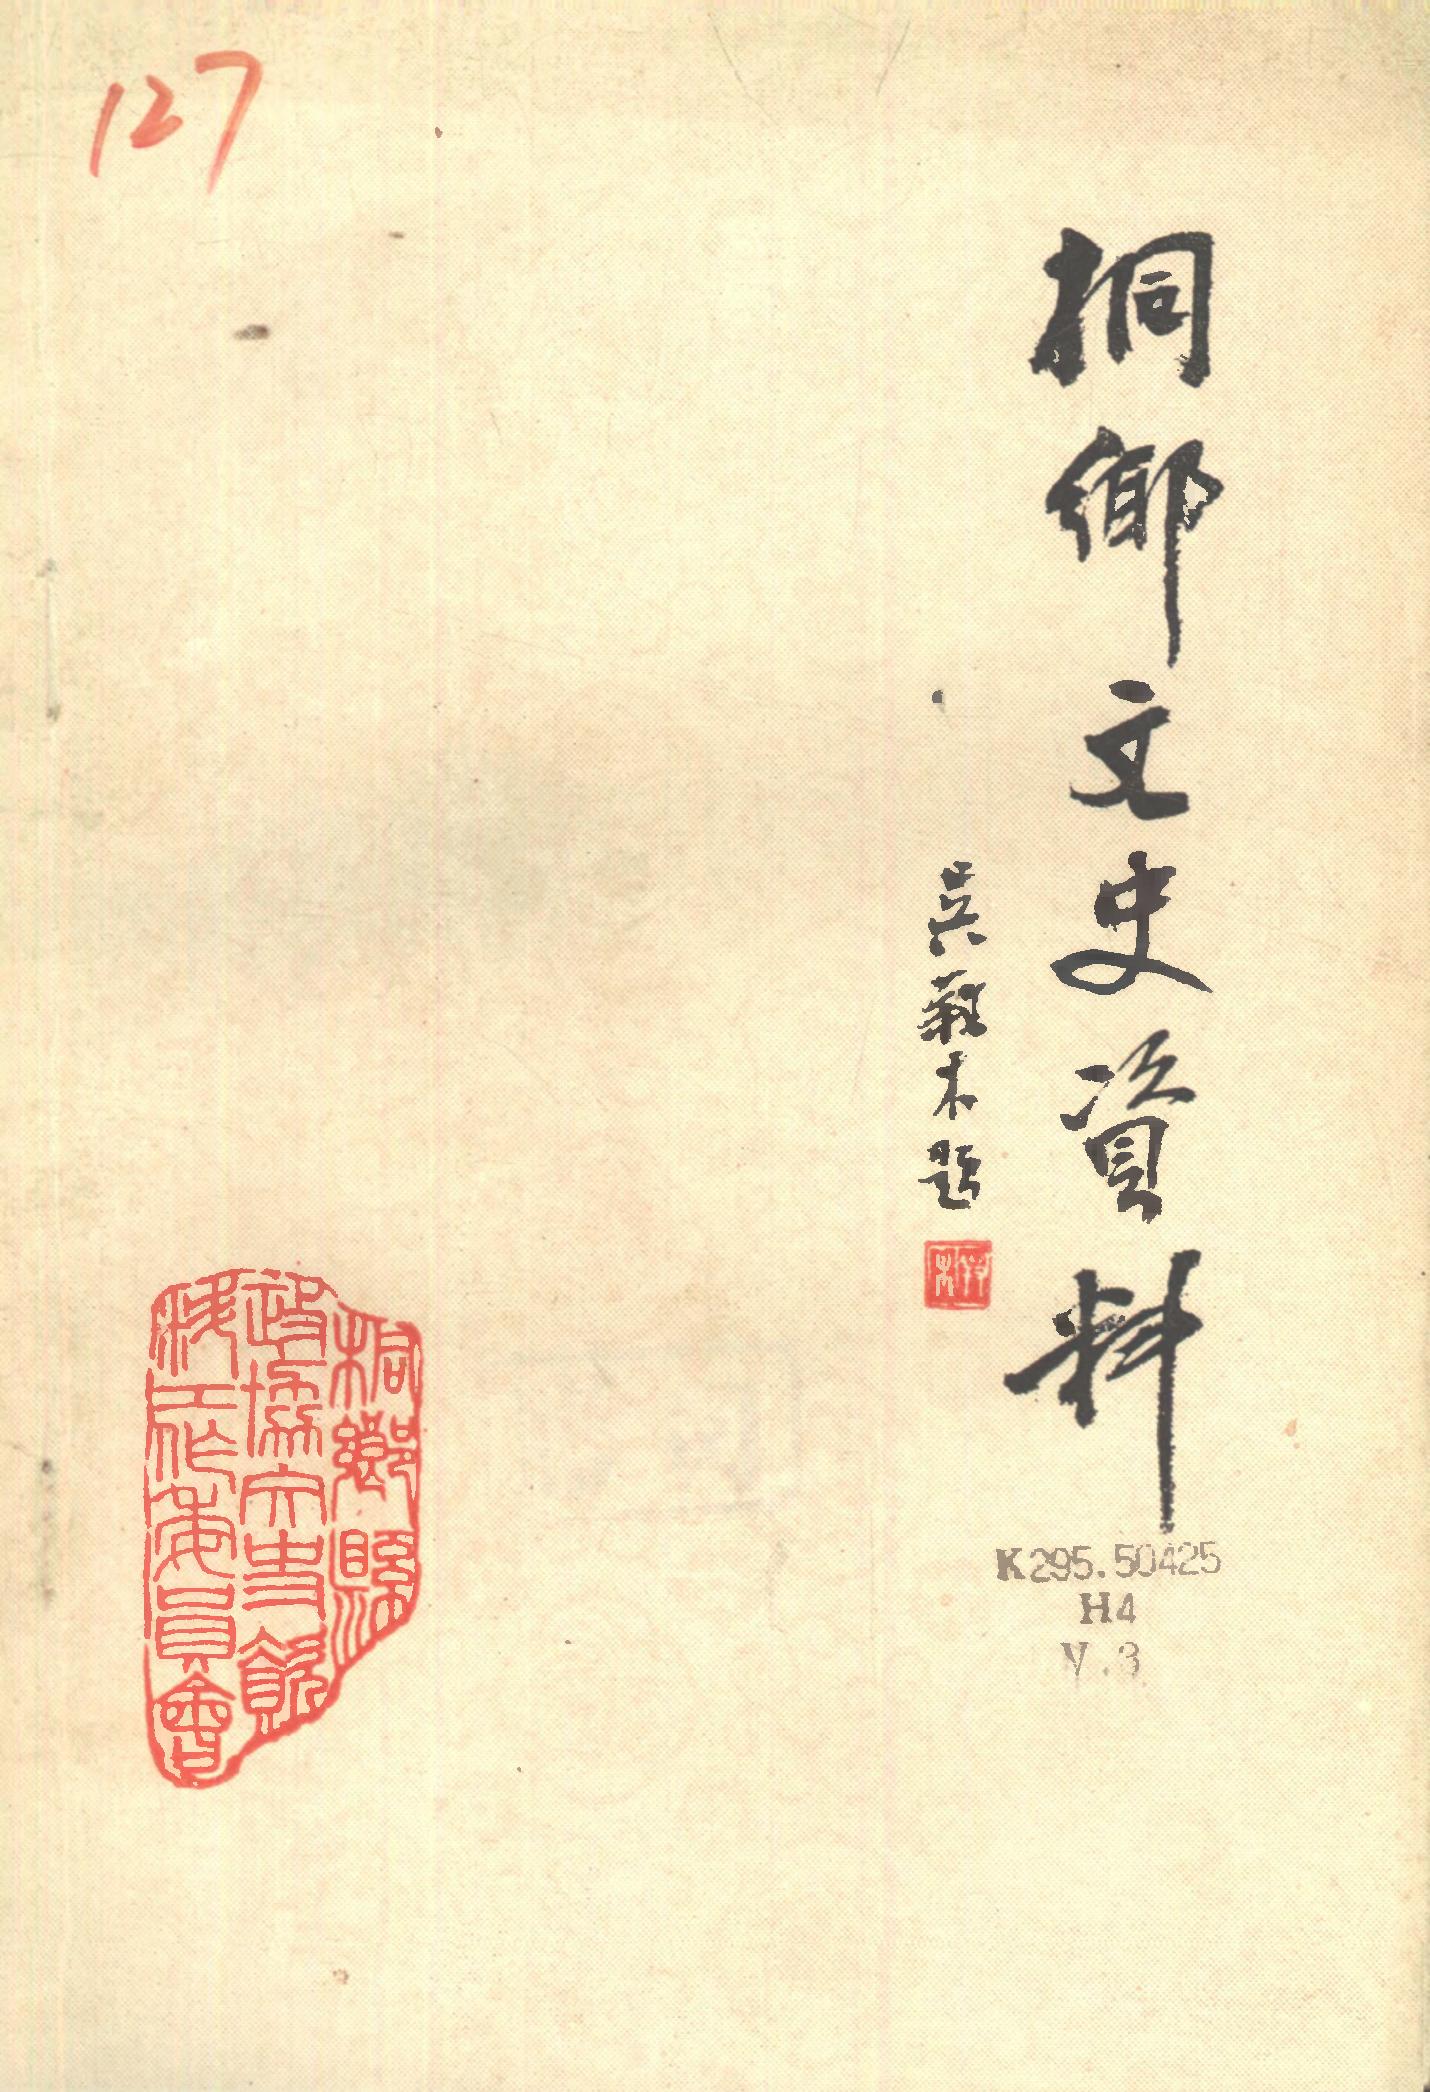 127
桐鄉文史資料
吳蓬木題
K295.50425
H4
V.3
桐鄉縣
政協文史資
料工作委員會